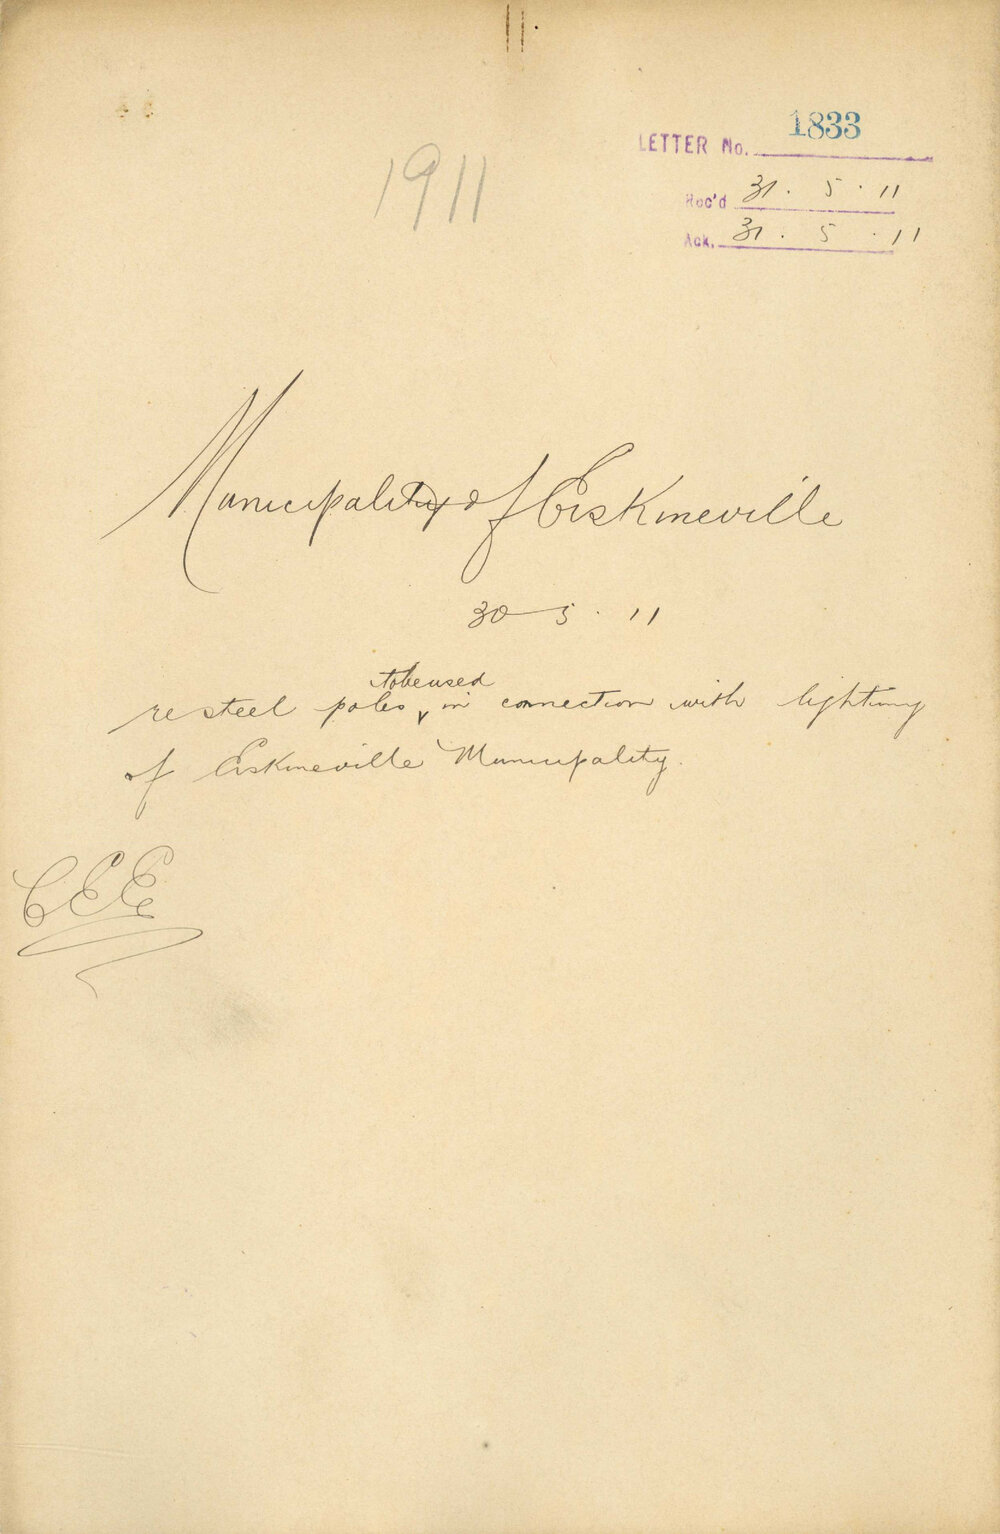 1911
LETTER No. 1833
Rec'd 31 . 5 . 11
Ack. 31 . 5 . 11
Municipality of Erskineville
30 5 . 11
re steel poles to be used in connection with lighting
of Erskineville Municipality.
CEE